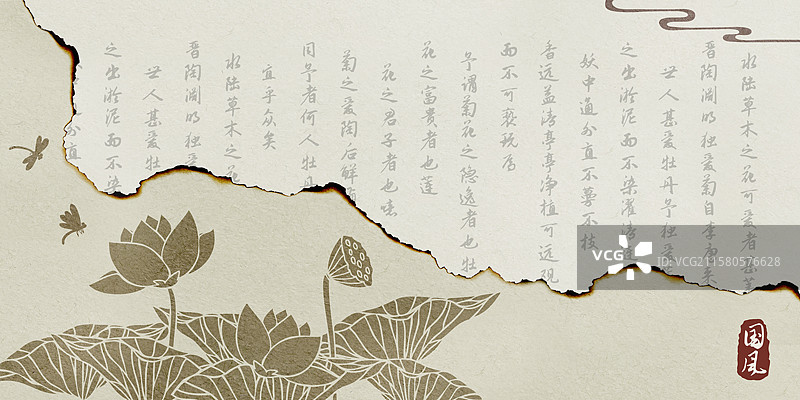 水陆草木之花可爱者甚蕃
晋陶渊明独爱菊自李唐来
世人甚爱牡丹予独爱
之出淤泥而不染濯清涟
妖中通外直不蔓不枝
香远益清亭亭净植可远观
而不可亵玩焉
予谓菊花之隐逸者也牡
花之富贵者也莲
花之君子者也噫
菊之爱陶后鲜有
同予者何人牡丹
宜乎众矣
水陆草木之花
晋陶渊明独爱
世人甚爱牡
之出淤泥而不染
外直
视觉中国
ID:VCG211580576628
国风